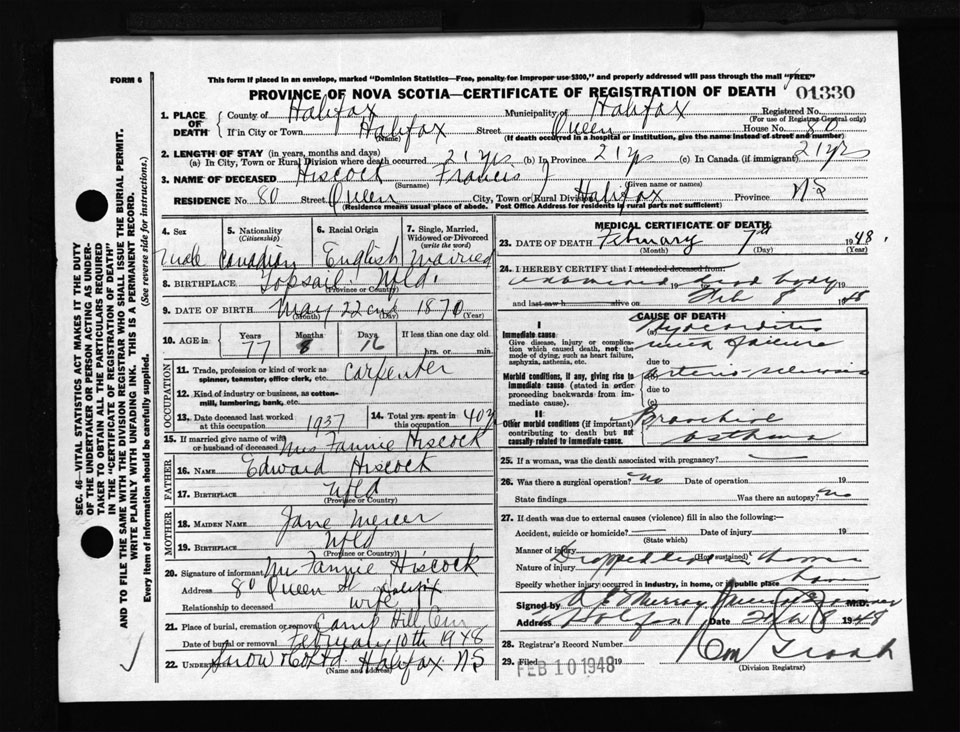 FORM 6
This form if placed in an envelope, marked "Dominion Statistics—Free, penalty for improper use $300," and properly addressed will pass through the mail "FREE"
PROVINCE OF NOVA SCOTIA—CERTIFICATE OF REGISTRATION OF DEATH 01330
1. PLACE OF DEATH { County of Halifax Municipality of Halifax Registered No.
(For use of Registrar General only)
If in City or Town Halifax Street Queen House No. 80
(Name) (If death occurred in a hospital or institution, give the name instead of street and number)
2. LENGTH OF STAY (in years, months and days)
(a) In City, Town or Rural Division where death occurred 21 yrs (b) In Province 21 yrs (c) In Canada (if immigrant) 21 yrs
3. NAME OF DECEASED Hiscock Francis J
(Surname) (Given name or names)
RESIDENCE No. 80 Street Queen City, Town or Rural Division Halifax Province NS
(Residence means usual place of abode. Post Office Address for residents in rural parts not sufficient)
4. Sex Male
5. Nationality (Citizenship) Canadian
6. Racial Origin English
7. Single, Married, Widowed or Divorced (write the word) Married
8. BIRTHPLACE Topsail Nfld.
(Province or Country)
9. DATE OF BIRTH May 22nd 1870
(Month) (Day) (Year)
10. AGE in { Years 77 Months 8 Days 16 If less than one day old
hrs. or min.
OCCUPATION
11. Trade, profession or kind of work as spinner, teamster, office clerk, etc. Carpenter
12. Kind of industry or business, as cotton-mill, lumbering, bank, etc.
13. Date deceased last worked at this occupation 1937
14. Total yrs. spent in this occupation 40 y
15. If married give name of wife or husband of deceased Mrs Fannie Hiscock
FATHER
16. NAME Edward Hiscock
17. BIRTHPLACE Nfld
(Province or Country)
MOTHER
18. MAIDEN NAME Jane Mercer
19. BIRTHPLACE Nfld
(Province or Country)
20. Signature of informant Mrs Fannie Hiscock
Address 80 Queen St Halifax
Relationship to deceased Wife
21. Place of burial, cremation or removal Camp Hill Cem
Date of burial or removal February 10th 1948
22. UNDERTAKER Snow & Co Ltd. Halifax NS
(Name and address)
MEDICAL CERTIFICATE OF DEATH
23. DATE OF DEATH February 7th 1948.
(Month) (Day) (Year)
24. I HEREBY CERTIFY that I attended deceased from:
examined dead body
19
and last saw h alive on Feb 8 1948
CAUSE OF DEATH
I
Immediate cause
Give disease, injury or complication which caused death, not the mode of dying, such as heart failure, asphyxia, asthenia, etc.
(a) Myocarditis
with failure
due to
Morbid conditions, if any, giving rise to immediate cause (stated in order proceeding backwards from immediate cause).
(b) Arterio-sclerosis
due to
(c)
II
Other morbid conditions (if important) contributing to death but not causally related to immediate cause.
Bronchial
asthma
25. If a woman, was the death associated with pregnancy?
26. Was there a surgical operation? No Date of operation 19
State findings Was there an autopsy? No
27. If death was due to external causes (violence) fill in also the following:—
Accident, suicide or homicide? Date of injury 19
(State which)
Manner of injury Dropped dead in home
(How sustained)
Nature of injury
Specify whether injury occurred in industry, in home, or in public place home
Signed by Murray Medical Examiner M.D.
Address Halifax Date Feb 8 1948
28. Registrar's Record Number
29. Filed FEB 10 1948 19
(Division Registrar)
SEC. 46—VITAL STATISTICS ACT MAKES IT THE DUTY
OF THE UNDERTAKER OR PERSON ACTING AS UNDER-
TAKER TO OBTAIN ALL THE PARTICULARS REQUIRED
IN THE "CERTIFICATE OF REGISTRATION OF DEATH"
AND TO FILE THE SAME WITH THE DIVISION REGISTRAR WHO SHALL ISSUE THE BURIAL PERMIT.
WRITE PLAINLY WITH UNFADING INK. THIS IS A PERMANENT RECORD.
Every item of information should be carefully supplied. (See reverse side for instructions.)